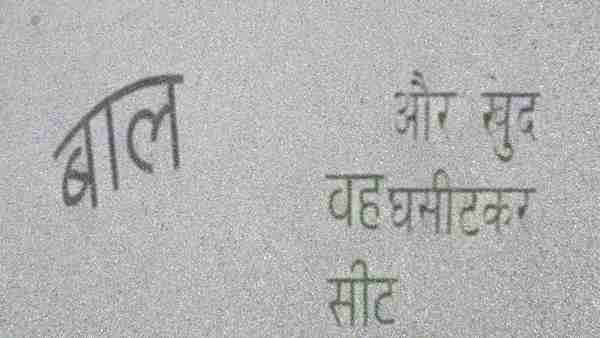 बाल
और खुद
वह घसीटकर
सीट